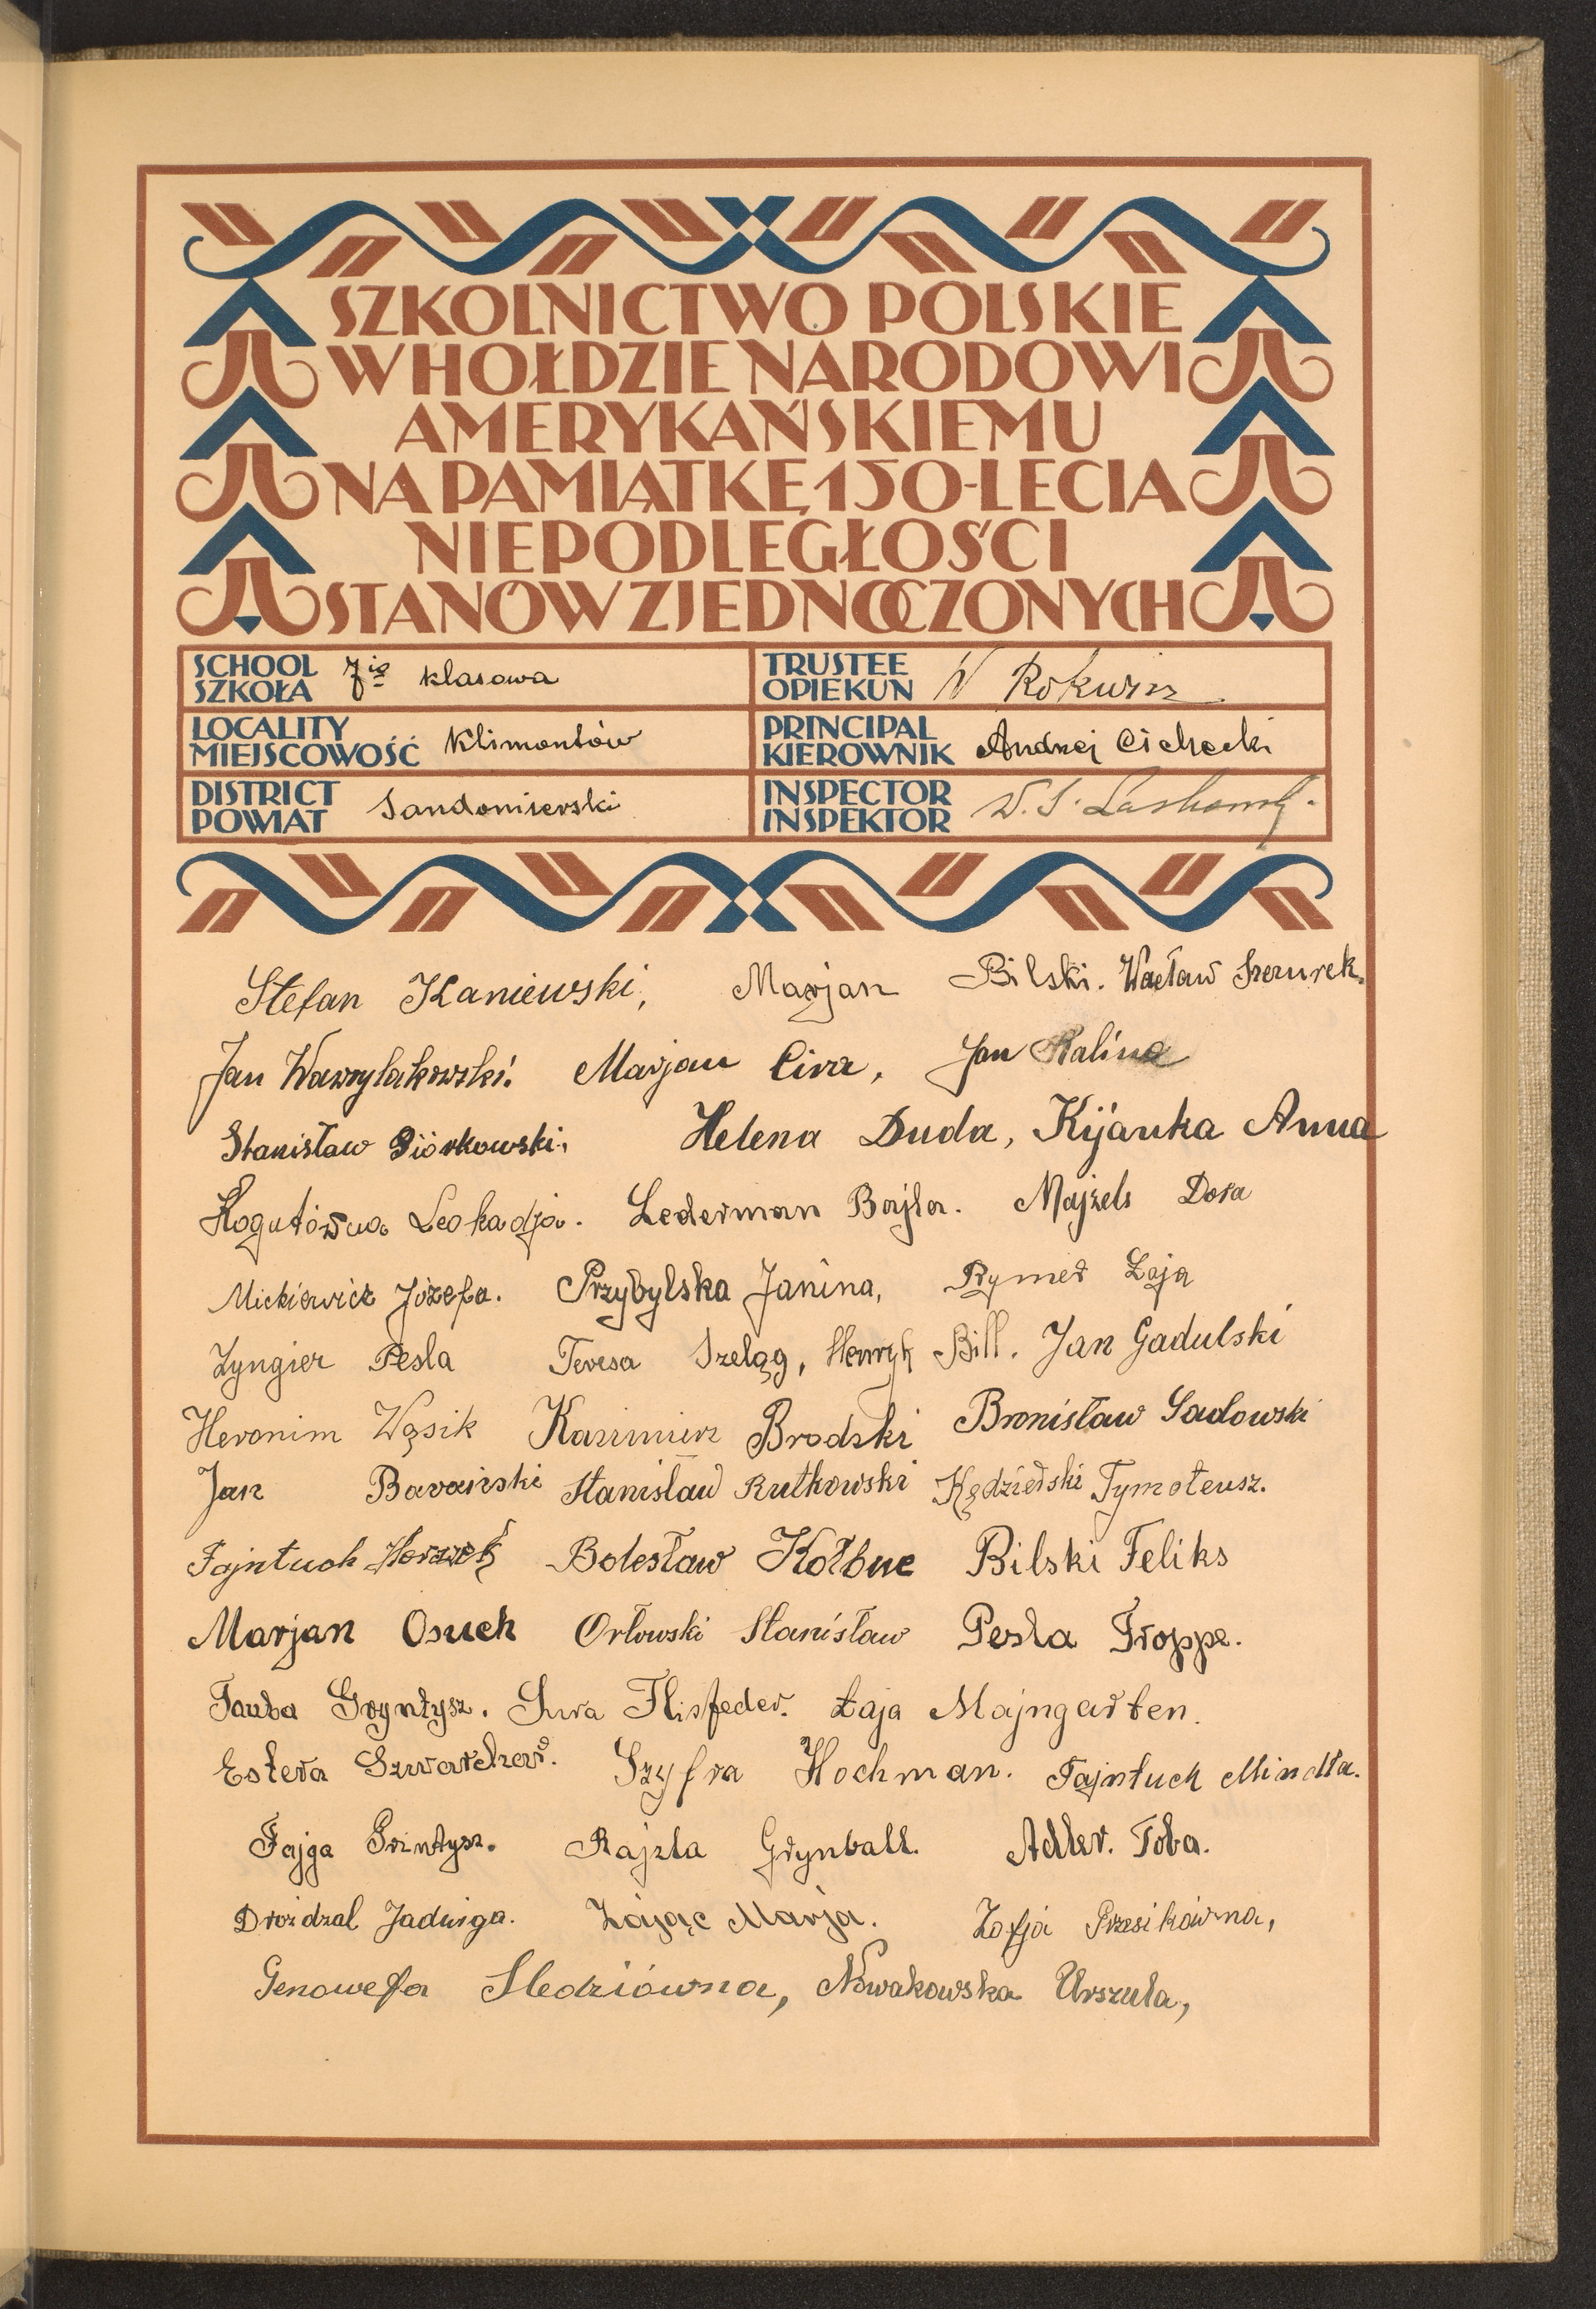 SZKOLNICTWO POLSKIE
W HOŁDZIE NARODOWI
AMERYKAŃSKIEMU
NA PAMIĄTKĘ 150-LECIA
NIEPODLEGŁOŚCI
STANÓW ZJEDNOCZONYCH
SCHOOL SZKOŁA 7io klasowa
TRUSTEE OPIEKUN
LOCALITY MIEJSCOWOŚĆ Klimontów
PRINCIPAL KIEROWNIK Andrzej Cichocki
DISTRICT POWIAT Sandomierski
INSPECTOR INSPEKTOR
Stefan Kaniewski, Marjan Bilski. Wacław Szczurek.
Jan Wawrylakowski. Marjan Cira, Jan Kalina
Stanisław Piórkowski, Helena Duda, Kijanka Anna
Kogutówna Leokadja. Lederman Bajla. Majzels Dora
Mickiewicz Józefa. Przybylska Janina, Rymer Łaja
Zyngier Pesla Teresa Szeląg, Henryk Bill. Jan Gadulski
Heronim Wąsik Kazimierz Brodzki Bronisław Sadowski
Jan Stanisław Rutkowski Kędzierski Tymoteusz.
Fajntuch Bolesław Kołbuc Bilski Feliks
Marjan Osuch Orłowski Stanisław Pesla Froppe.
Tauba Gryntysz. Sura Flisfeder. Łaja Majngarten.
Estera Szwarchar. Szyfra Hochman. Fajntuch Mindla.
Fajga Grintysz. Rajzla Grynball. Adler. Toba.
Drożdzal Jadwiga. Zając Marja. Zofja Przesikówna,
Genowefa Sledziówna, Nowakowska Urszula,